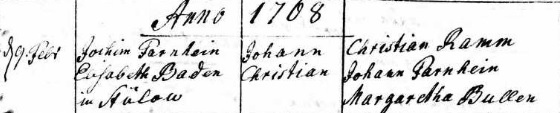 Anno 1708
d 9. Febr Jochim Parnhein Johann Christian Ramm
Elisabeth Baden Christian Johann Parnhein
in Stülow Margaretha Bullen